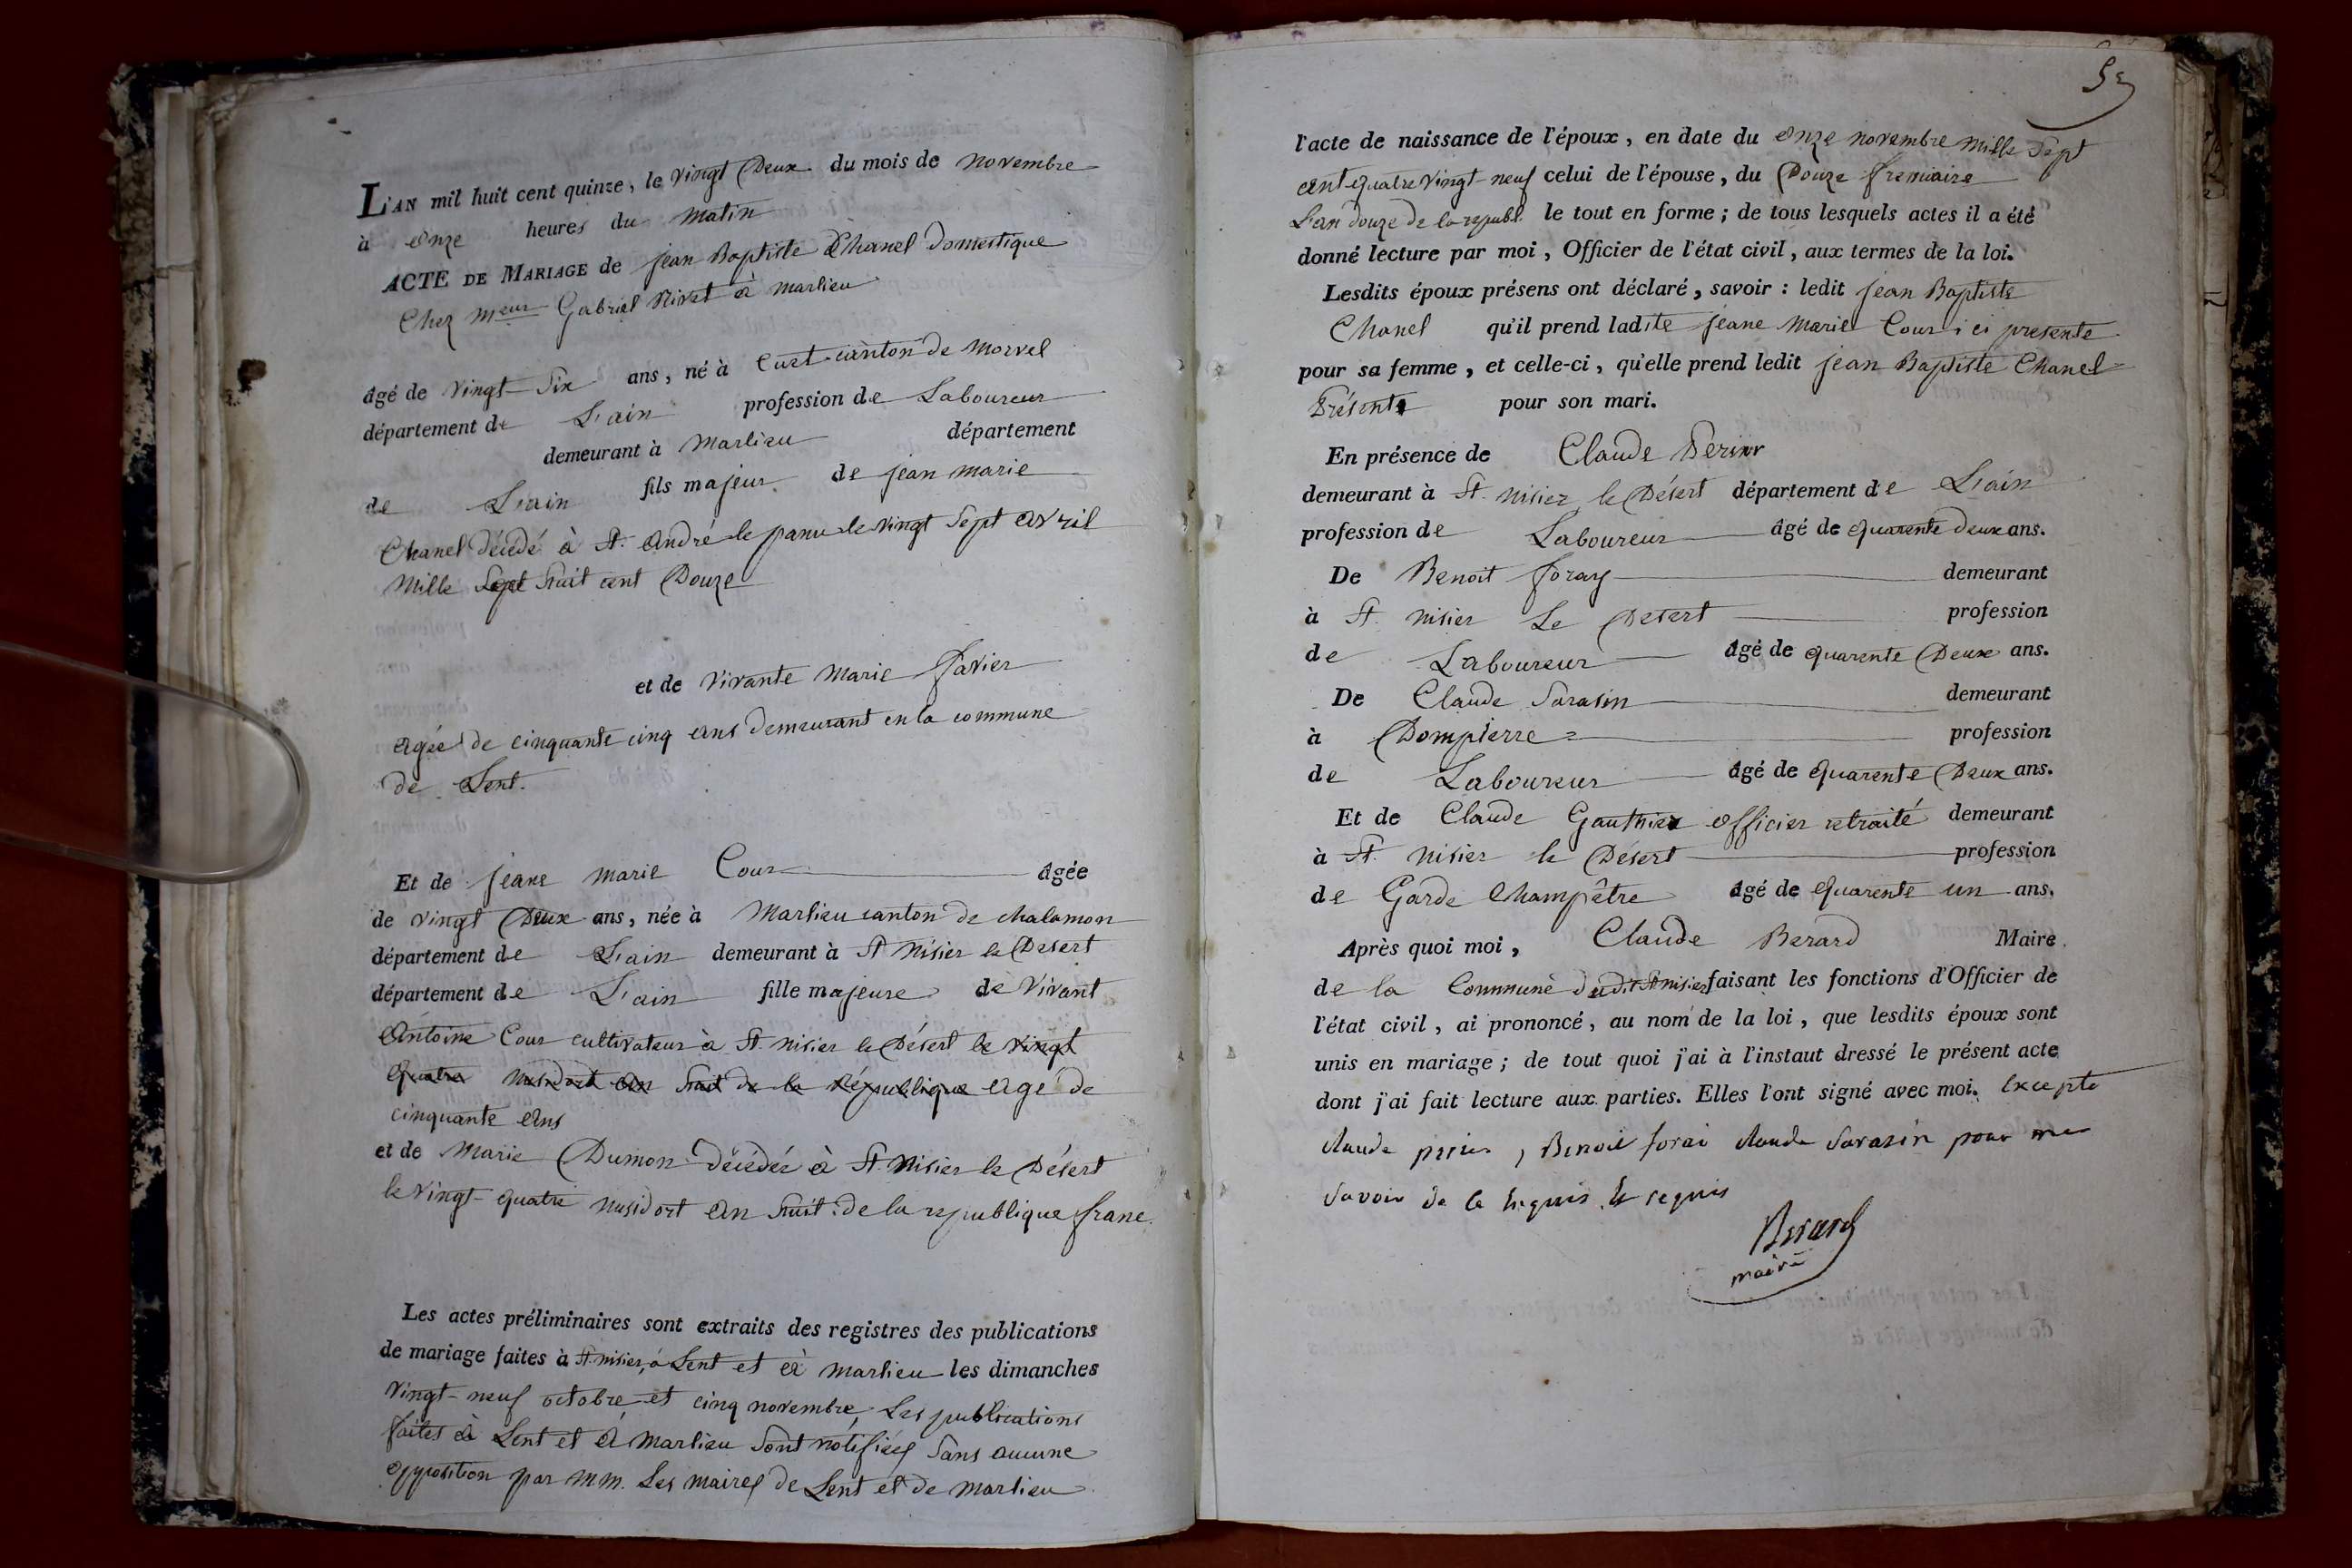 L'AN mil huit cent quinze, le vingt Deux du mois de novembre
à onze heures du matin
ACTE DE MARIAGE de jean Baptiste Chanel domestique
Chez meur Gabriel Nivet à marlieu
âgé de vingt Six ans, né à Curt canton de morvel
département de L'ain profession de Laboureur
demeurant à marlieu département
de L'ain fils majeur de jean marie
Chanel décédé à St. andré le panu le vingt Sept avril
mille Sept huit cent Douze
et de vivante marie favier
agée de cinquante cinq ans demeurant en la commune
de Lent.
Et de jeane marie Cour âgée
de vingt Deux ans, née à marlieu canton de chalamon
département de L'ain demeurant à St nisier le Desert
département de L'ain fille majeure de vivant
antoine Cour cultivateur à St. nisier le Désert le vingt
quatre messidort an huit de la République agé de
cinquante ans
et de marie Dumon décédée à St. nisier le Désert
le vingt-quatre messidort an huit de la republique franc.
Les actes préliminaires sont extraits des registres des publications
de mariage faites à St. nisier, à Lent et à marlieu les dimanches
vingt-neuf octobre et cinq novembre, Les publications
faites à Lent et à marlieu Sont notifiées Sans aucune
opposition par m.m. Les maires de Lent et de marlieu
l'acte de naissance de l'époux, en date du onze novembre mille Sept
cent quatre vingt-neuf celui de l'épouse, du Douze fremaire
L'an douze de la republ. le tout en forme; de tous lesquels actes il a été
donné lecture par moi, Officier de l'état civil, aux termes de la loi.
Lesdits époux présens ont déclaré, savoir: ledit jean Baptiste
Chanel qu'il prend ladite jeane marie Cour ici presente
pour sa femme, et celle-ci, qu'elle prend ledit jean Baptiste Chanel
Présent pour son mari.
En présence de Claude
demeurant à St. nisier le Désert département de L'ain
profession de Laboureur âgé de quarente deux ans.
De Benoit foray demeurant
à St. nisier Le Desert profession
de Laboureur âgé de quarente Deux ans.
De Claude Sarasin demeurant
à Dompierre profession
de Laboureur âgé de quarente Deux ans.
Et de Claude Gauthier officier retraité demeurant
à St. nisier le Désert profession
de Garde Champêtre âgé de quarente un ans.
Après quoi moi, Claude Berard Maire
de la Commune dudit St nisier faisant les fonctions d'Officier de
l'état civil, ai prononcé, au nom de la loi, que lesdits époux sont
unis en mariage; de tout quoi j'ai à l'instaut dressé le présent acte
dont j'ai fait lecture aux parties. Elles l'ont signé avec moi. Excepte
claude perier, Benoit forai claude Sarasin pour ne
Savoir de ce enquis et requis
Berard
maire